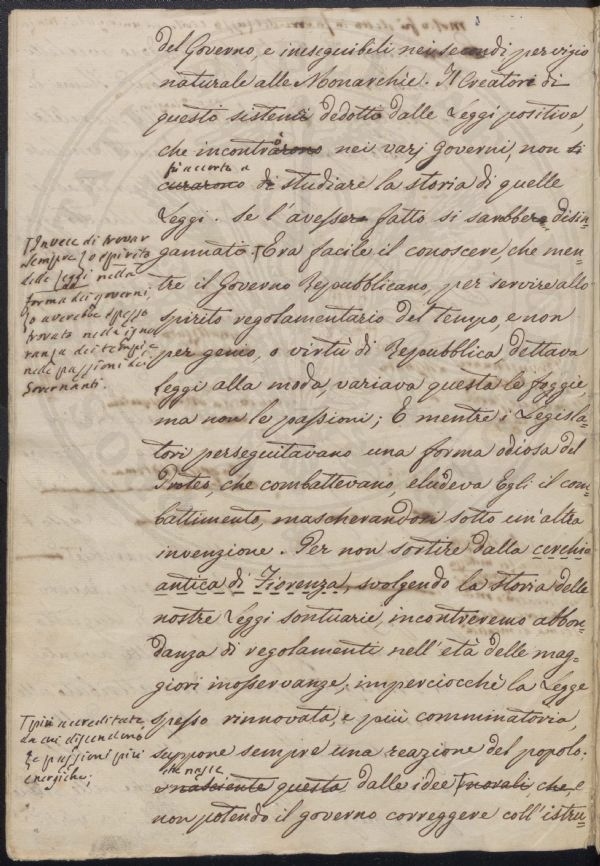 del Governo, e ineseguibili nei secondi per vizio
naturale alle Monarchie. Il Creatori di
questo sistema dedotto dalle Leggi positive,
che incontrarono nei varj Governi, non si
curarono di studiare la storia di quelle
Leggi. Se l'avesser fatto si sarebber disin-
gannati. Era facile il conoscere, che men-
tre il Governo Repubblicano, per servire allo
spirito regolamentario del tempo, e non
per genio, o virtù di Repubblica dettava
leggi alla moda, variava questa le foggie,
ma non le passioni; E mentre i Legisla-
tori perseguitavano una forma odiosa del
Proteo, che combattevano, eludeva Egli il com-
battimento, mascherandosi sotto un'altra
invenzione. Per non sortire dalla cerchia
antica di Fiorenza, svolgendo la storia delle
nostre Leggi sontuarie, incontreremo abbon-
danza di regolamenti nell'età delle mag-
giori inosservanze; imperciocchè la Legge
spesso rinnovata, e più comminatoria,
suppone sempre una reazione del popolo.
che nasce
nasciente questa dalle idee morali, che, e
non potendo il governo correggere coll'istru-
Invece di trovar
sempre lo spirito
delle leggi nella
forma dei governi,
lo avrebbe spesso
trovato nella igno
ranza dei tempi e
nelle passioni dei
Governanti.
più accreditate
da cui dipendono
le passioni più
energiche;